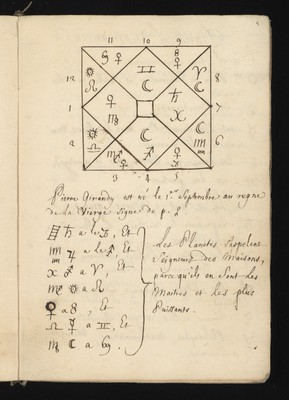 11 10 9
12 8
1 7
2 6
3 4 5
Pierre Girandy est né le 1.er Septembre au regne
de la Vierge signe de p.
♄ a le ♑, Et
♃ a le ♐, Et
♂ a ♈, Et
☉ a ♌
♀ a ♉, Et
♎ ☿ a ♊, Et
☾ a ♋.
Les Planetes s'apelent
Seigneurs des Maisons,
parce qu'ils en sont les
Maitres et les plus
Puissants.